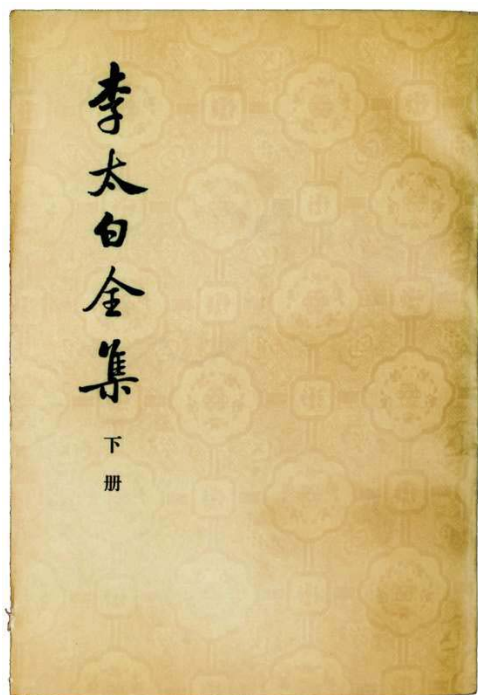 李太白全集
下册